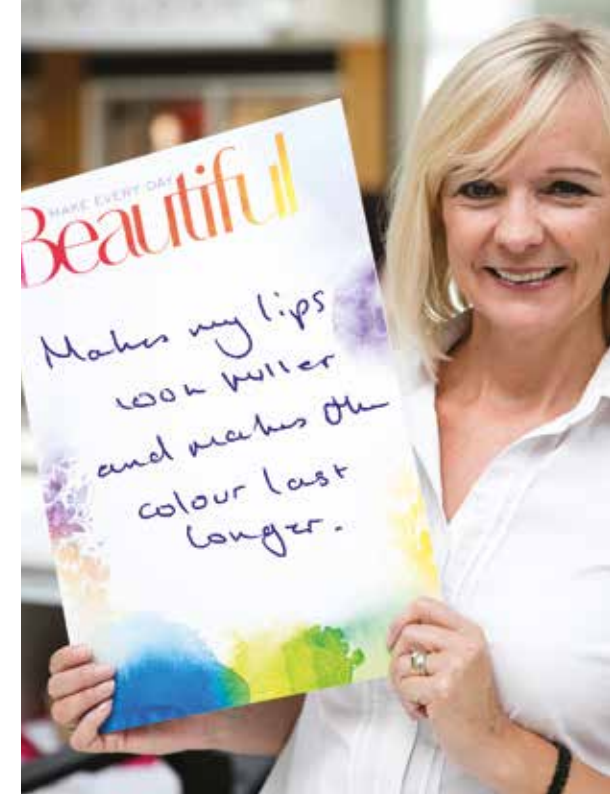 MAKE EVERY DAY
Beautiful
Makes my lips
look fuller
and makes the
colour last
longer.